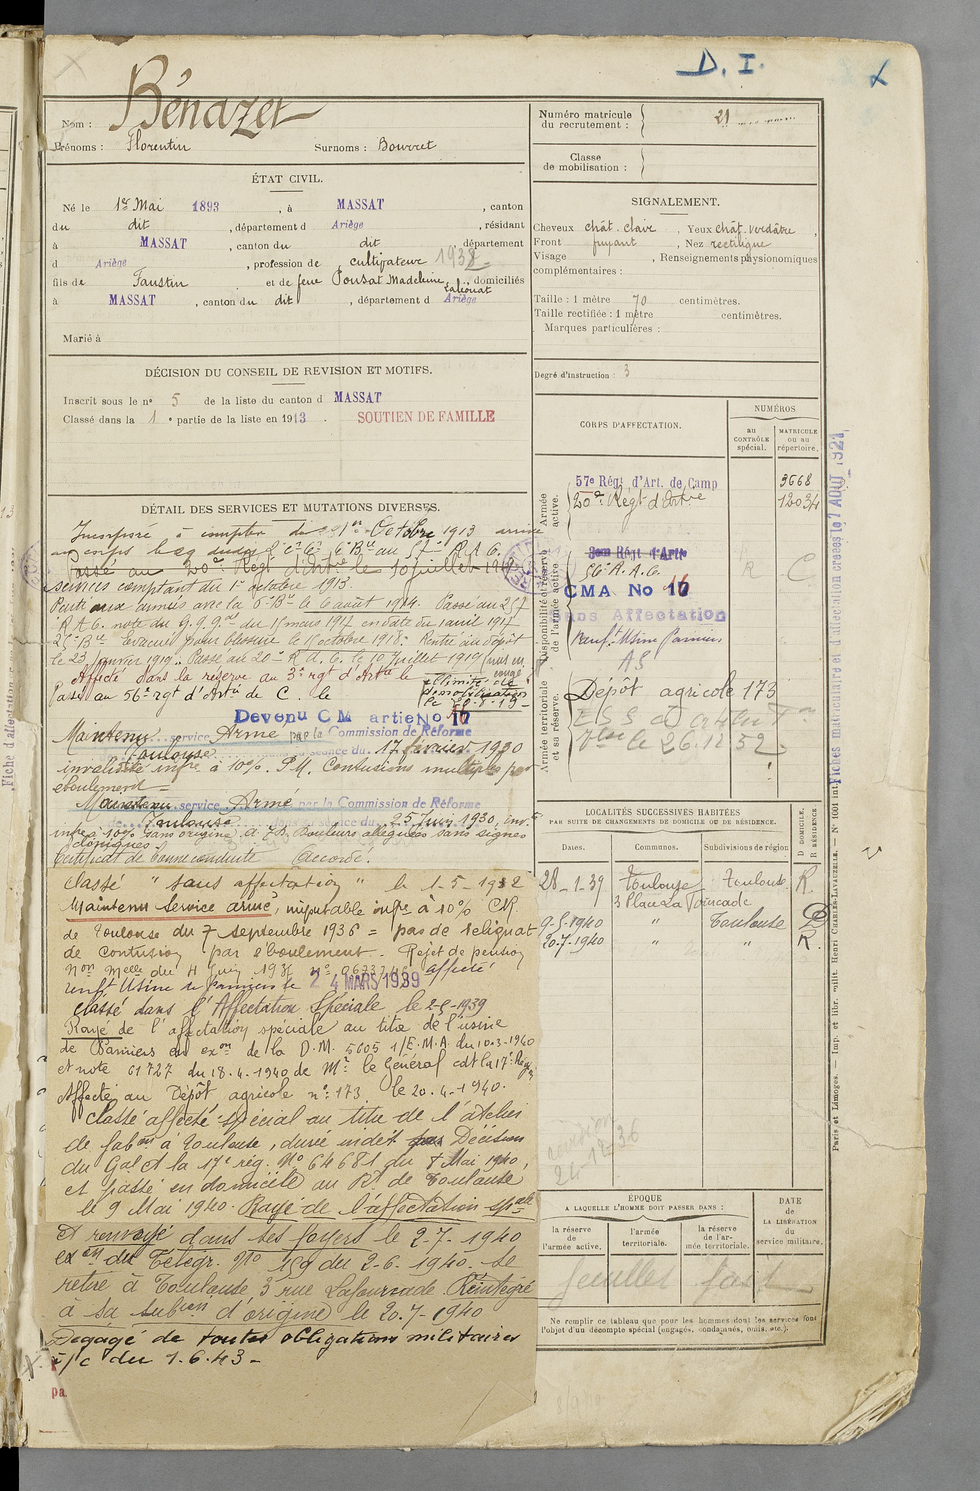 D. I.
Nom : Bénazet
Prénoms : Florentin Surnoms : Bourret
ÉTAT CIVIL.
Né le 1er Mai 1893, à MASSAT, canton
du dit, département d Ariège, résidant
à MASSAT, canton du dit, département
d Ariège, profession de cultivateur 1938
fils de Faustin et de feue Ponsat Madeleine, domiciliés
à MASSAT, canton du dit, département d Ariège
Marié à
DÉCISION DU CONSEIL DE REVISION ET MOTIFS.
Inscrit sous le nº 5 de la liste du canton d MASSAT
Classé dans la 1 e partie de la liste en 1913. SOUTIEN DE FAMILLE
DÉTAIL DES SERVICES ET MUTATIONS DIVERSES.
Incorporé à compter du 1er Octobre 1913 arrivé
au corps le
Passé au 20e Régt d'Artie le 10 juillet
services comptant du 1er octobre 1913.
Parti aux armées avec la 6e Bie le 6 août 1914. Passé au 257
R.A.C. note du G.Q.Gal du 15 mars 1917 en date du 1 avril 1917
25e Bie Evacué pour blessure le 1 octobre 1918. Rentré au dépôt
le 23 janvier 1919. Passé au 20e R.A.C. le 10 juillet 1919
Affecté dans la réserve au 3e rgt d'Artie le
Passé au 56e rgt d'Artie de C. le
Devenu CM artie No 17
Maintenu service Armé par la Commission de Réforme
de Toulouse séance du 17 février 1930
invalidité infre à 10% P.M. Contusions multiples par
éboulement =
Maintenu service Armé par la Commission de Réforme
de Toulouse dans sa séance du 25 Juin 1930, inv.
infre à 10% sans origine. Douleurs alléguées sans signes
cliniques
Certificat de bonne conduite Accordé.
classé "sans affectation" le 1-5-1932
Maintenu Service armé, imputable infre à 10% CR
de Toulouse du 7 septembre 1936 = pas de reliquat
de contusion par éboulement - Rejet de pension
affecté
renft Usine de Pamiers le 24 MARS 1939
classé dans l'Affectation Spéciale le 2-9-1939
Rayé de l'affectation spéciale au titre de l'usine
de Pamiers en exon de la D.M. 5605 1/E.M.A. du 10-3-1940
et note 61727 du 18.4.1940 de Mr le Général cdt la 17e Région
Affecté au Dépôt agricole nº 173 le 20.4-1940.
Classé affecté spécial au titre de l'atelier
de fabon à Toulouse, durée indét Décision
du Gal Ct la 17e rég. Nº 64681 du 8 Mai 1940,
et passé en domicile au Rt de Toulouse
le 9 Mai 1940. Rayé de l'affectation spale
et renvoyé dans ses foyers le 2-7-1940
exon du Télégr. No du 2-6-1940. se
retire à Toulouse, 3 rue Lafourcade Réintégré
à sa subon d'origine le 20.7-1940
Degagé de toutes obligations militaires
p/c du 1.6.43 -
pa
Numéro matricule
du recrutement : 21
Classe
de mobilisation :
SIGNALEMENT.
Cheveux chât. clair, Yeux chât. verdâtre,
Front fuyant, Nez rectiligne
Visage, Renseignements physionomiques
complémentaires :
Taille : 1 mètre 70 centimètres.
Taille rectifiée : 1 mètre centimètres.
Marques particulières :
Degré d'instruction : 3
CORPS D'AFFECTATION.
NUMÉROS
au CONTRÔLE spécial.
MATRICULE OU AU répertoire.
Armée active.
57e Régt d'Art. de Camp 3668
20e Régt d'Artie 12034
Disponibilité et réserve de l'armée active.
3em Régt d'Artie
56e R.A.C. R C
CMA No 17
Sans Affectation
Renft Usine Pamiers
AS
Armée territoriale et sa réserve.
Dépôt agricole 173
le 26.12.52
LOCALITÉS SUCCESSIVES HABITÉES
PAR SUITE DE CHANGEMENTS DE DOMICILE OU DE RÉSIDENCE.
Dates. Communes. Subdivisions de région.
D DOMICILE.
R RÉSIDENCE
28-1-39 Toulouse Toulouse R.
3 Place La Fourcade
9-5-1940 " Toulouse D
20-7-1940 " " R.
ÉPOQUE
A LAQUELLE L'HOMME DOIT PASSER DANS :
la réserve de l'armée active.
l'armée territoriale.
la réserve de l'armée territoriale.
DATE
de
LA LIBÉRATION
du
service militaire.
feuillet fait
Ne remplir ce tableau que pour les hommes dont les services font
l'objet d'un décompte spécial (engagés, condamnés, omis, etc.).
Fiches matriculaire et d'affectation créées le 7 AOUT 1921
Paris et Limoges. — Imp. et libr. milit. Henri CHARLES-LAVAUZELLE. — Nº 1091